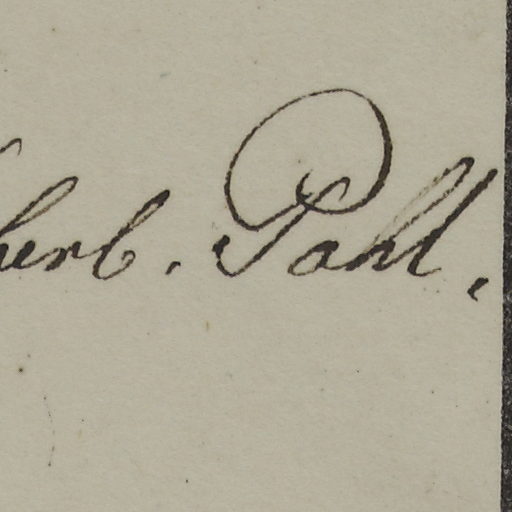 herb. Pohl.